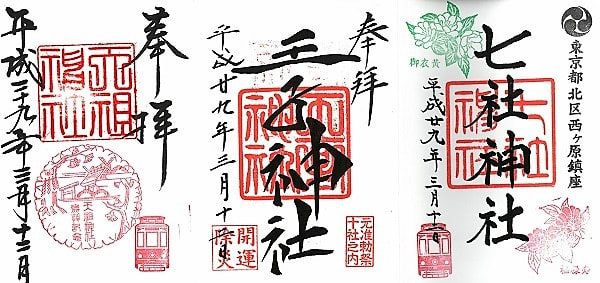 奉拝
天祖神社
平成二九年三月十二日
奉拝
王子神社
王子神社
平成廿九年三月十二日
元准勅祭
十社之内
開運
除災
東京都北区西ヶ原鎮座
七社神社
七社神社
平成廿九年三月十二日
御衣黄